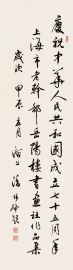 慶祝中華人民共和國成立七十五周年
上海市老幹部岳陽樓書畫社作品集
歲次甲辰五月